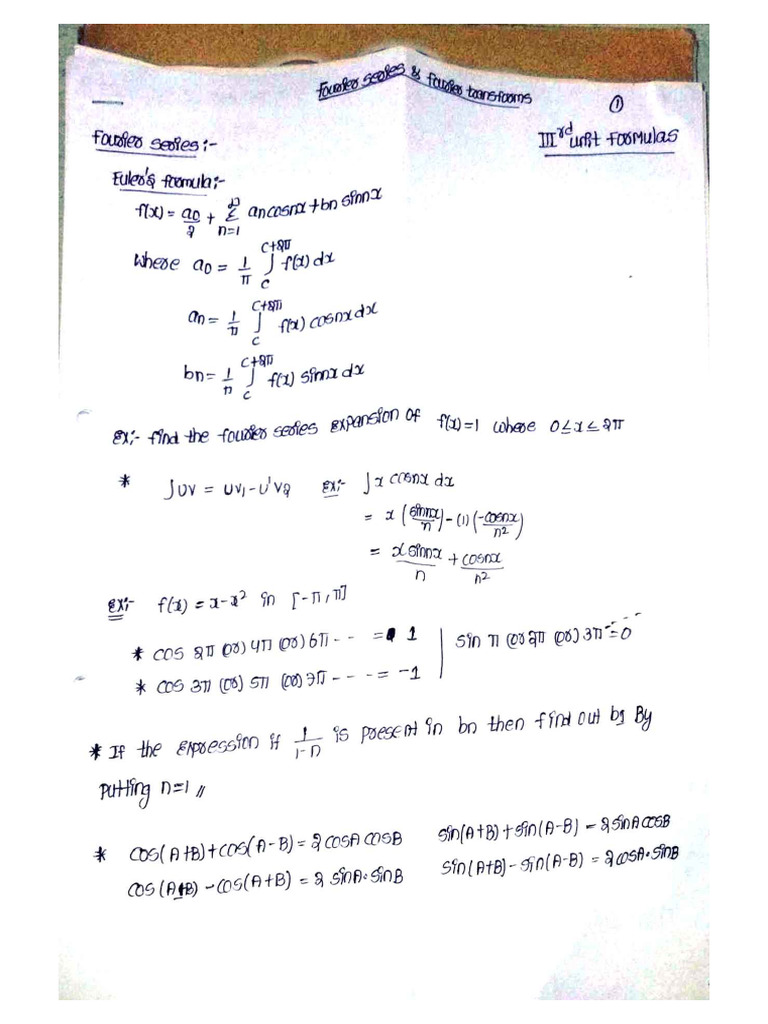 Fourier series & fourier transforms
①
IIIrd unit FORMULAS
Fourier series:-
Euler's formula:-
f(x) = a0/2 + ∞ Σ n=1 an cosnx + bn sinnx
where a0 = 1/π ∫ c^{c+2π} f(x) dx
an = 1/π ∫ c^{c+2π} f(x) cosnx dx
bn = 1/π ∫ c^{c+2π} f(x) sinnx dx
Ex:- find the fourier series expansion of f(x)=1 where 0≤x≤2π
* ∫uv = uv1 - u'v2 Ex:- ∫x cosnx dx
= x (sinnx/n) - (1) (-cosnx/n²)
= x sinnx/n + cosnx/n²
Ex:- f(x) = x-x² in [-π, π]
* cos 2π (or) 4π (or) 6π - - - = 1 | sin π (or) 2π (or) 3π - - - = 0
* cos 3π (or) 5π (or) 7π - - - - = -1
* If the expression if 1/1-n is present in bn then find out b1 By
putting n=1 //
* cos(A+B)+cos(A-B) = 2cosA cosB sin(A+B)+sin(A-B) = 2sinAcosB
cos(A-B) - cos(A+B) = 2 sinA·sinB sin(A+B)-sin(A-B) = 2cosA·sinB